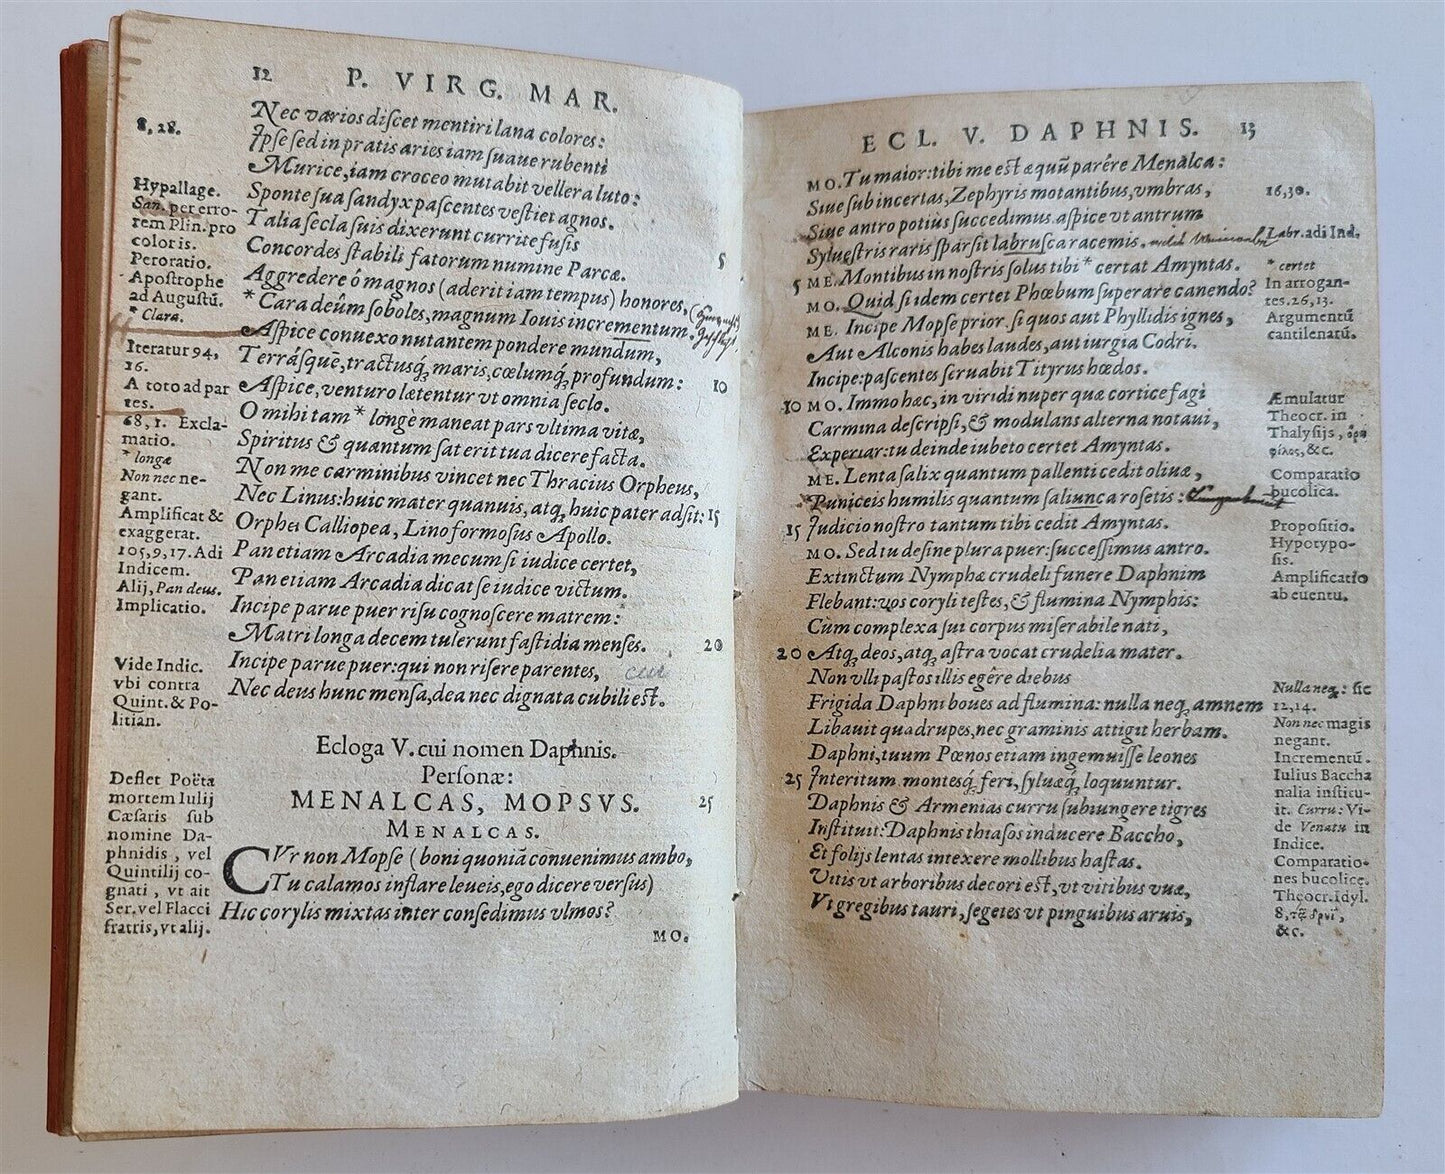 12 P. VIRG. MAR.
8, 28.
Nec varios diſcet mentiri lana colores:
Ipſe ſed in pratis aries iam ſuaue rubenti
Murice, iam croceo mutabit vellera luto:
Sponte ſua ſandyx paſcentes veſtiet agnos.
Talia ſecla ſuis dixerunt currite fuſis
Concordes ſtabili fatorum numine Parcæ. 5
Aggredere ó magnos (aderit iam tempus) honores,
* Cara deûm ſoboles, magnum Iouis incrementum.
Aſpice conuexo nutantem pondere mundum,
Terráſque, tractuſq́; maris, cœlumq́; profundum: 10
Aſpice, venturo lætentur vt omnia ſeclo.
O mihi tam * longè maneat pars vltima vitæ,
Spiritus & quantum ſat erit tua dicere facta.
Non me carminibus vincet nec Thracius Orpheus,
Nec Linus: huic mater quanuis, atq; huic pater adſit: 15
Orphei Calliopea, Lino formoſus Apollo.
Pan etiam Arcadia mecum ſi iudice certet,
Pan etiam Arcadia dicat ſe iudice victum.
Incipe parue puer riſu cognoſcere matrem:
Matri longa decem tulerunt faſtidia menſes. 20
Incipe parue puer: qui non riſere parentes,
Nec deus hunc menſa, dea nec dignata cubili eſt.
Hypallage.
San. per erro-
rem Plin. pro
coloris.
Peroratio.
Apoſtrophe
ad Auguſtū.
* Clara.
Iteratur 94,
16.
A toto ad par
tes.
68, 1. Excla-
matio.
* longæ
Non nec ne-
gant.
Amplificat &
exaggerat.
105, 9, 17. Adi
Indicem.
Alij, Pan deus.
Implicatio.
Vide Indic.
vbi contra
Quint. & Po-
litian.
Ecloga V. cui nomen Daphnis.
Perſonæ:
MENALCAS, MOPSVS. 25
MENALCAS.
CVr non Mopſe (boni quoniā conuenimus ambo,
Tu calamos inflare leueis, ego dicere verſus)
Hic corylis mixtas inter conſedimus vlmos?
MO.
Deflet Poëta
mortem Iulij
Cæſaris ſub
nomine Da-
phnidis, vel
Quintilij co-
gnati, vt ait
Ser. vel Flacci
fratris, vt alij.
ECL. V. DAPHNIS. 13
MO. Tu maior: tibi me eſt æquū parêre Menalca:
Siue ſub incertas, Zephyris motantibus, vmbras,
Siue antro potiùs ſuccedimus. aſpice vt antrum
Sylueſtris raris ſparſit labruſca racemis.
5 ME. Montibus in noſtris ſolus tibi * certat Amyntas.
MO. Quid ſi idem certet Phœbum ſuperare canendo?
ME. Incipe Mopſe prior. ſi quos aut Phyllidis ignes,
Aut Alconis habes laudes, aut iurgia Codri.
Incipe: paſcentes ſeruabit Tityrus hœdos.
10 MO. Immo hæc, in viridi nuper quæ cortice fagi
Carmina deſcripſi, & modulans alterna notaui,
Experiar: tu deinde iubeto certet Amyntas.
ME. Lenta ſalix quantum pallenti cedit oliuæ,
Puniceis humilis quantum ſaliunca roſetis:
15 Iudicio noſtro tantum tibi cedit Amyntas.
MO. Sed tu deſine plura puer: ſucceſſimus antro.
Extinctum Nymphæ crudeli funere Daphnim
Flebant: vos coryli teſtes, & flumina Nymphis:
Cùm complexa ſui corpus miſerabile nati,
20 Atq; deos, atq; aſtra vocat crudelia mater.
Non vlli paſtos illis egêre diebus
Frigida Daphni boues ad flumina: nulla neq; amnem
Libauit quadrupes, nec graminis attigit herbam.
Daphni, tuum Pœnos etiam ingemuiſſe leones
25 Interitum monteſq́; feri, ſyluæq́; loquuntur.
Daphnis & Armenias curru ſubiungere tigres
Inſtituit: Daphnis thiaſos inducere Baccho,
Et folijs lentas intexere mollibus haſtas.
Vitis vt arboribus decori eſt, vt vitibus vuæ,
Vt gregibus tauri, ſegetes vt pinguibus aruis,
16, 30.
Labr. adi Ind.
* certet
In arrogan-
tes. 26, 13.
Argumentū
cantilenarū.
Æmulatur
Theocr. in
Thalyſijs,
&c.
Comparatio
bucolica.
Propoſitio.
Hypotypo-
ſis.
Amplificatio
ab euentu.
Nulla neq;: ſic
12, 14.
Non nec magis
negant.
Incrementū.
Iulius Baccha
nalia inſtitu-
it. Curru: Vi-
de Venatu in
Indice.
Comparatio-
nes bucolicę.
Theocr. Idyl.
8,
&c.